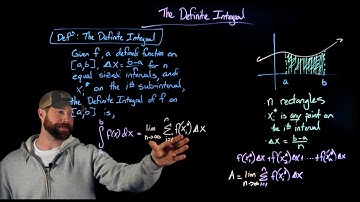 The Definite Integral
Defⁿ: The Definite Integral
Given f, a defined function on
[a,b], ΔX = b-a/n for n
equal sized intervals, and
Xᵢ* on the iᵗʰ sub-interval,
the Definite Integral of f on
[a,b] is,
∫ₐᵇ f(x) dx = lim n→∞ Σ f(Xᵢ*) ΔX
a b
· n rectangles
· Xᵢ* is any point on
the iᵗʰ interval
· ΔX = b-a/n
f(x₁*) ΔX + f(x₂*) ΔX + ··· + f(xₙ*) ΔX
A = lim n→∞ Σ i=1 n f(xᵢ*) ΔX